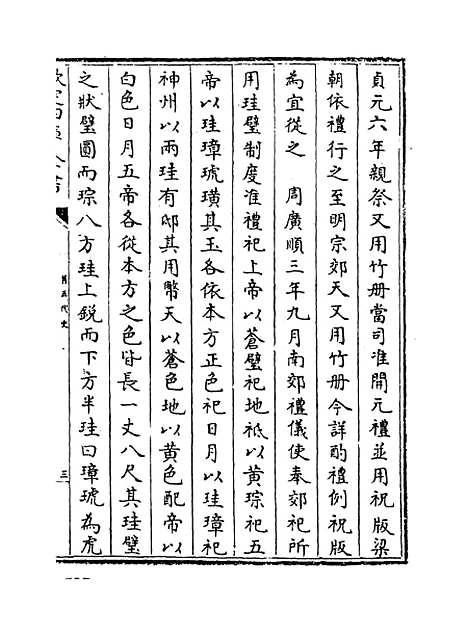 貞元六年親祭又用竹册當司准開元禮並用祝版梁
朝依禮行之至明宗郊天又用竹册今詳酌禮例祝版
為宜從之　周廣順三年九月南郊禮儀使奏郊祀所
用珪璧制度准禮祀上帝以蒼璧祀地祗以黄琮祀五
帝以珪璋琥璜其玉各依本方正色祀日月以珪璋祀
神州以兩珪有邸其用幣天以蒼色地以黄色配帝以
白色日月五帝各從本方之色皆長一丈八尺其珪璧
之狀璧圓而琮八方珪上鋭而下方半珪曰璋琥為虎
欽定四庫全書
舊五代史
三